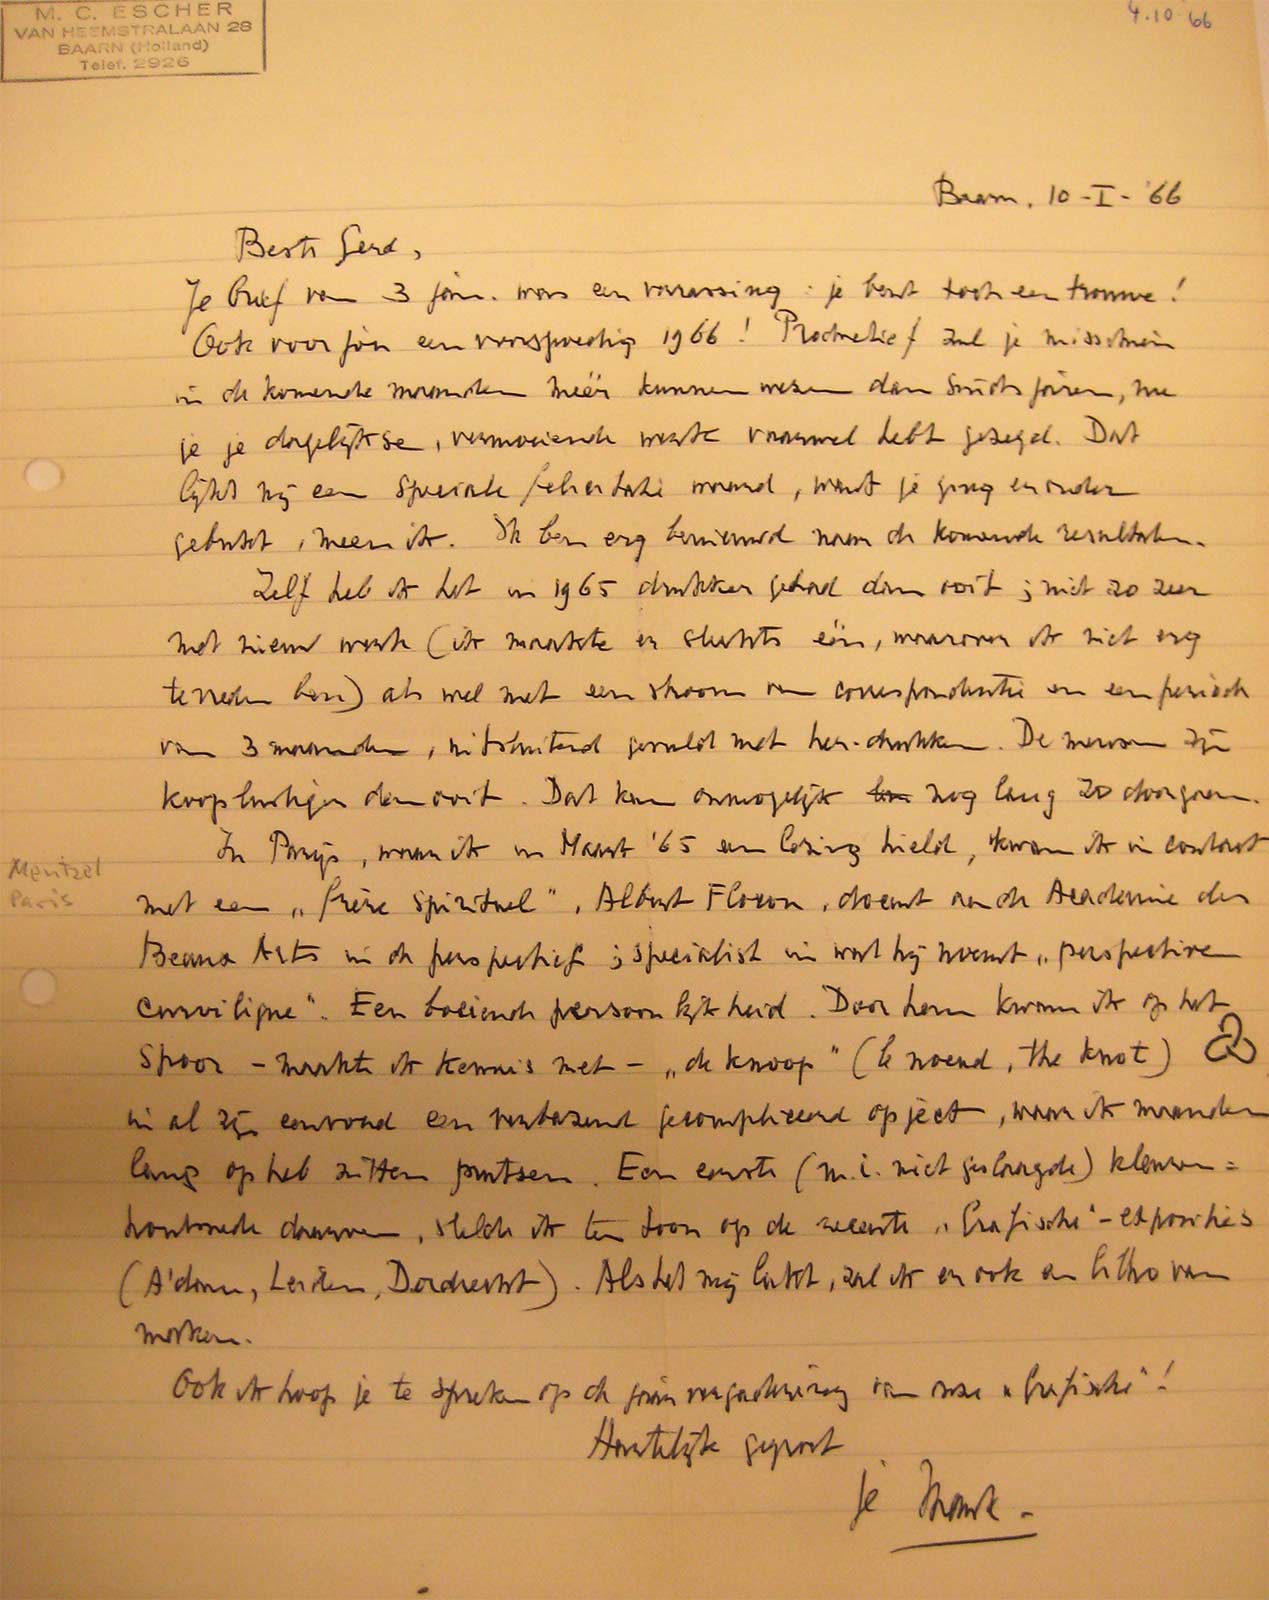 M. C. ESCHER
VAN HEEMSTRALAAN 28
BAARN (Holland)
Telef. 2926
4.10 '66
Baarn, 10-I-'66
Beste Gerd,
Je brief van 3 jan. was een verrassing: je bent toch een trouwe!
Ook voor jou een voorspoedig 1966! Productief zul je misschien
in de komende maanden méér kunnen wezen dan sinds jaren, nu
je je dagelijkse, vermoeiende werk vaarwel hebt gezegd. Dat
lijkt mij een speciale felicitatie waard, want je ging eronder
gebukt, meen ik. Ik ben erg benieuwd naar de komende resultaten.
Zelf heb ik het in 1965 drukker gehad dan ooit; niet zo zeer
met nieuw werk (ik maakte er slechts één, waarover ik niet erg
tevreden ben) als wel met een stroom van correspondentie en een periode
van 3 maanden, uitsluitend gevuld met her-drukken. De mensen zijn
kooplustiger dan ooit. Dat kan onmogelijk nog lang zo doorgaan.
In Parijs, waar ik in Maart '65 een lezing hield, kwam ik in contact
Mentzel
Paris
met een „frère spirituel", Albert Flocon, docent aan de Academie des
Beaux Arts in de perspectief; specialist in wat hij noemt „perspective
curviligne". Een boeiende persoonlijkheid. Door hem kwam ik op het
spoor – maakte ik kennis met – „de knoop" (le noeud, the knot)
in al zijn eenvoud een verbazend gecompliceerd opject, waar ik maanden
lang op heb zitten peutsen. Een eerste (m.i. niet geslaagde) kleuren=
houtsnede daarvan, stelde ik ten toon op de recente „Grafische"-exposities
(A'dam, Leiden, Dordrecht). Als het mij lukt, zal ik er ook een litho van
maken.
Ook ik hoop je te spreken op de jaarvergadering van onze „Grafische"!
Hartelijk gegroet
je Mauk.